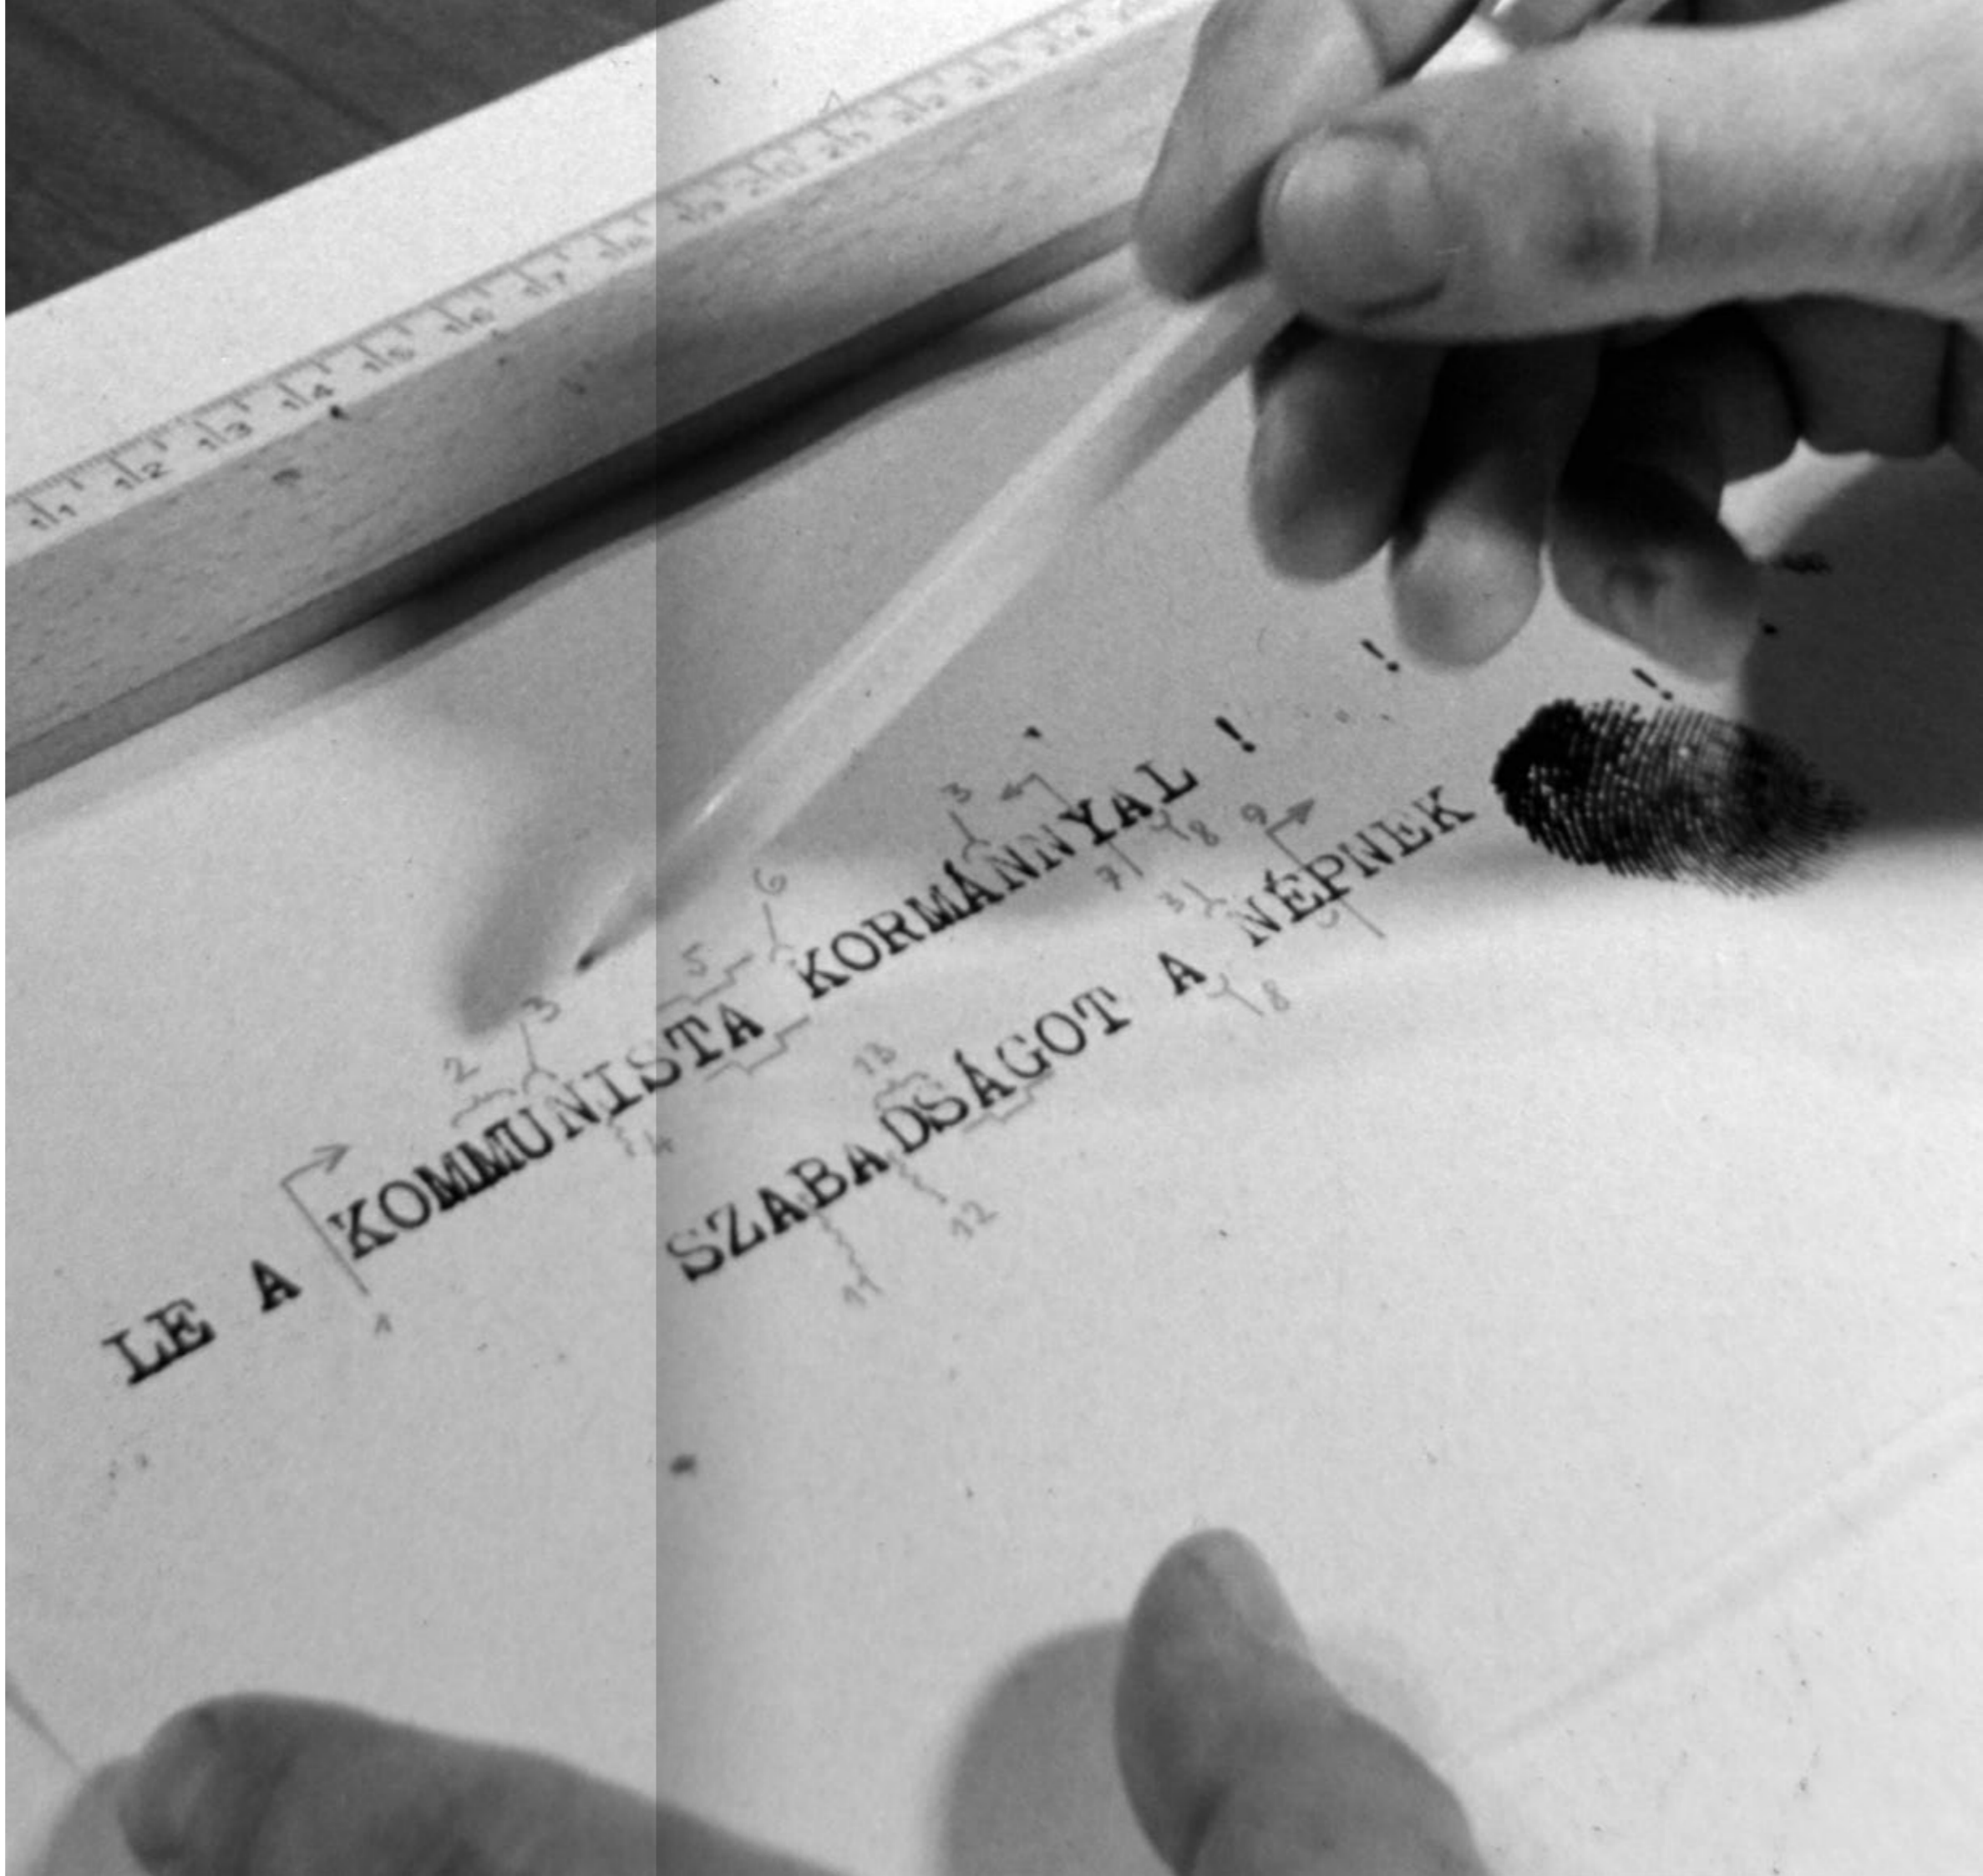 11 12 13 14 15 16 17 18 19 20 21 22 23 24
LE A KOMMUNISTA KORMÁNNYAL !
SZABADSÁGOT A NÉPNEK
! !
1 2 3 4 5 6 3 7 8
11 12 13 8 3 9